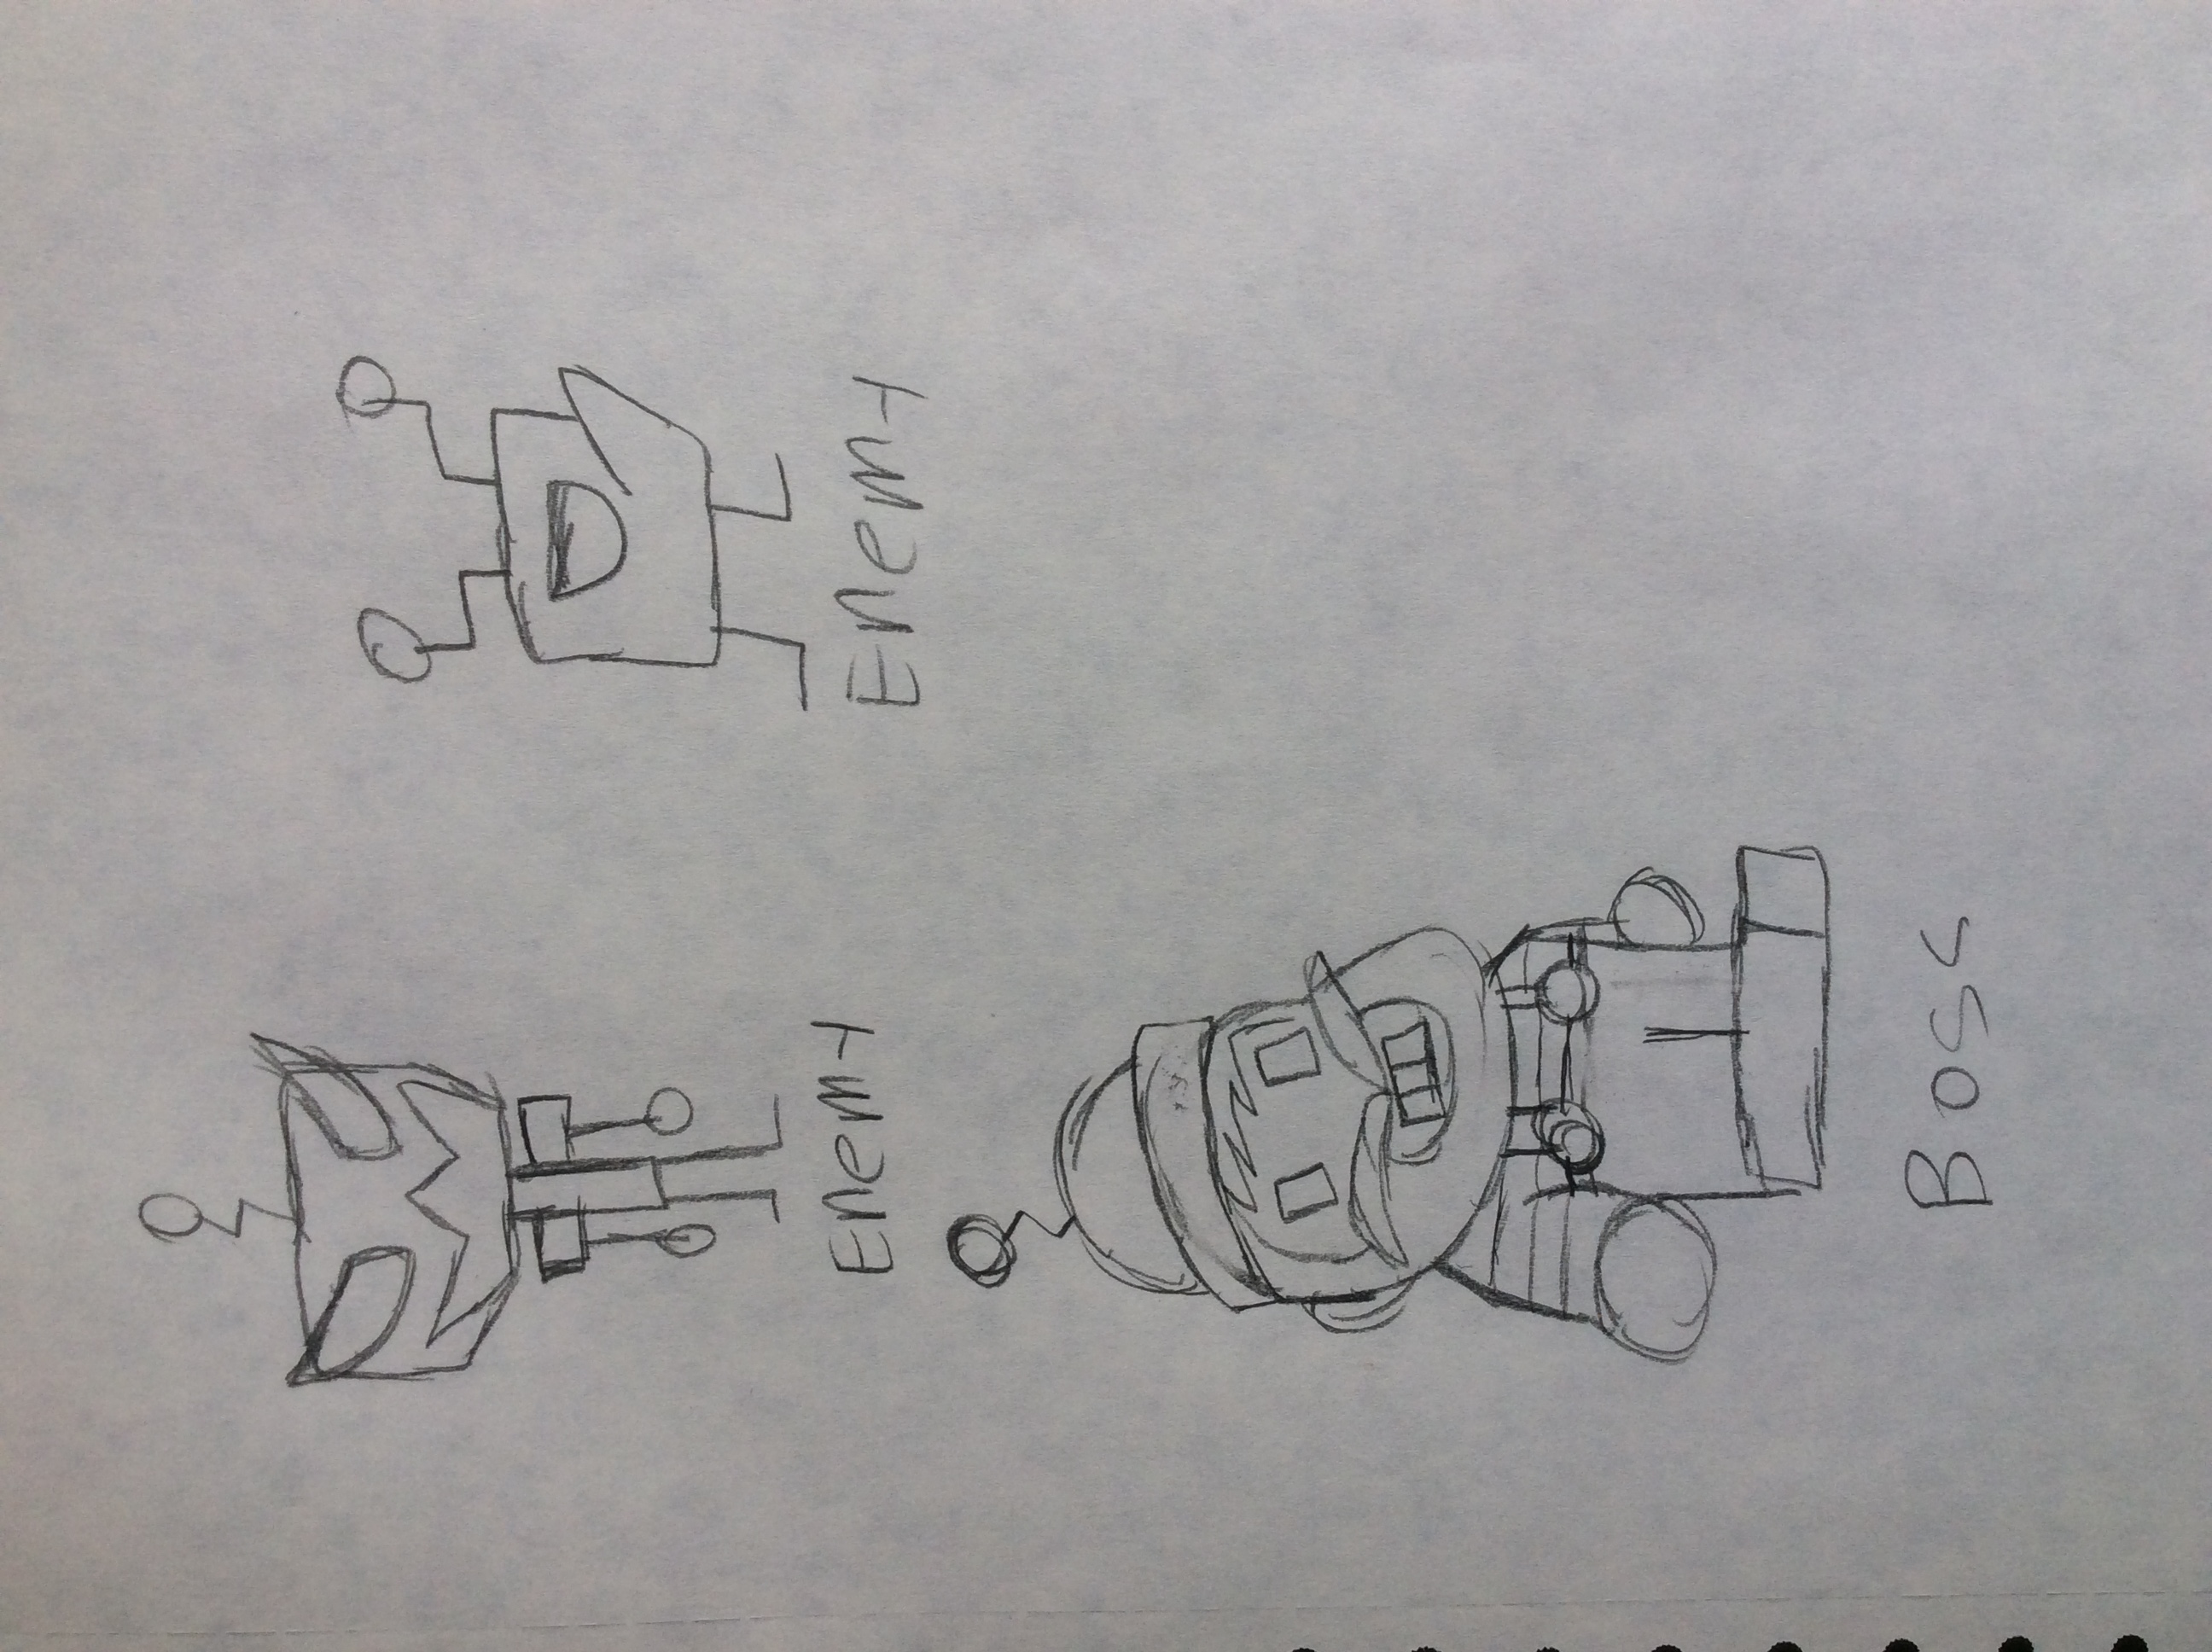 Enemy
Enemy
Boss